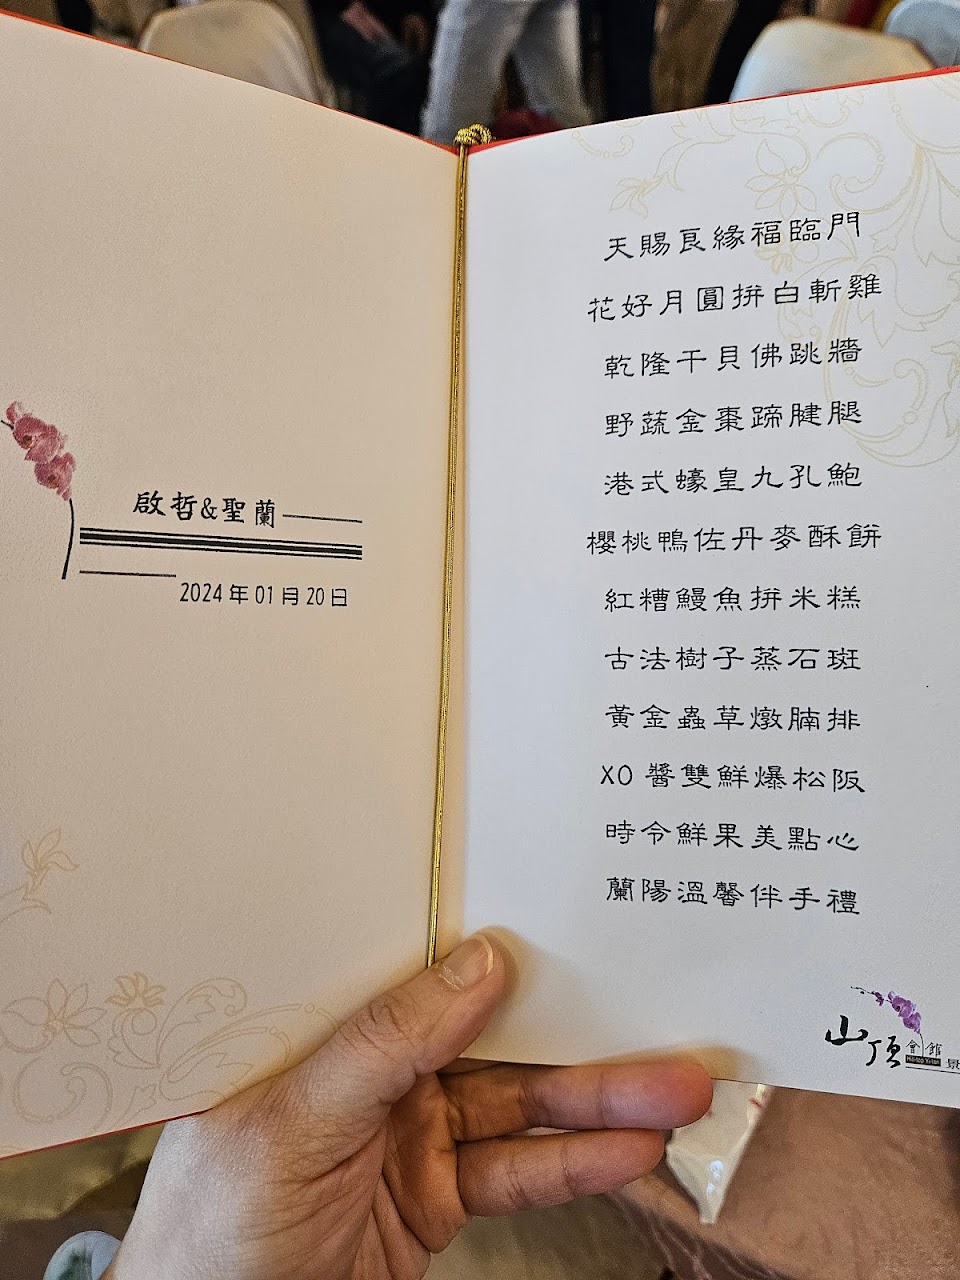 啟哲&聖蘭
2024年01月20日
天賜良緣福臨門
花好月圓拚白斬雞
乾隆干貝佛跳牆
野蔬金棗蹄腱腿
港式蠔皇九孔鮑
櫻桃鴨佐丹麥酥餅
紅糟鰻魚拚米糕
古法樹子蒸石斑
黃金蟲草燉腩排
XO醬雙鮮爆松阪
時令鮮果美點心
蘭陽溫馨伴手禮
山頂會館
景